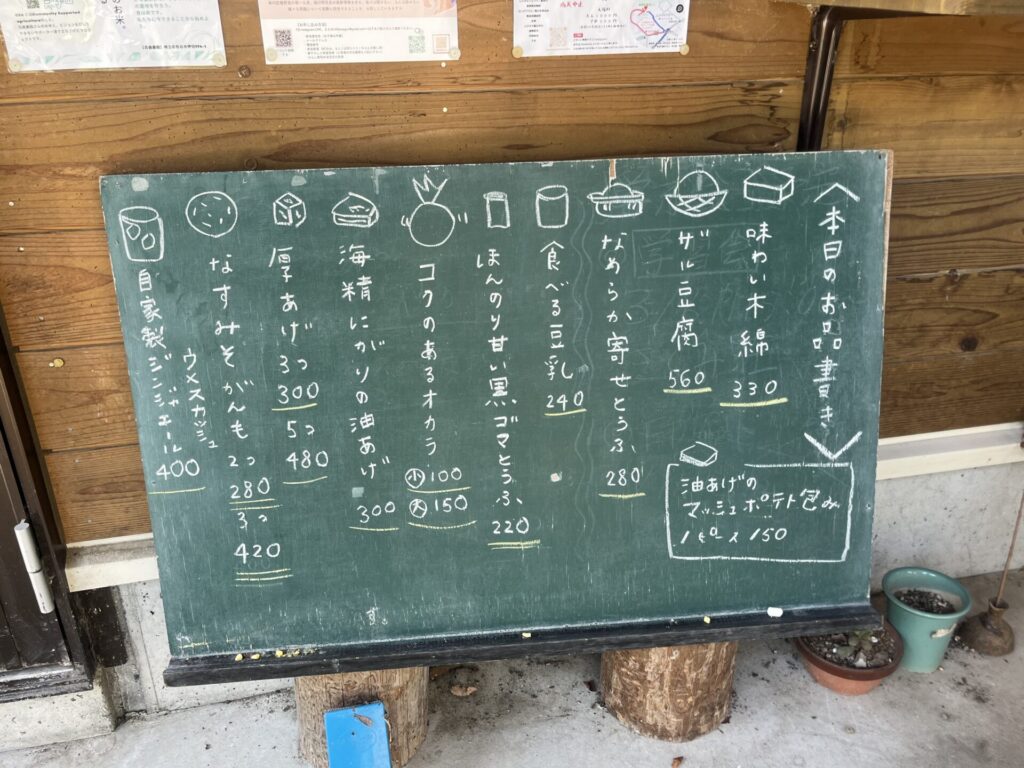 本日のお品書き
味わい木綿
330
ザル豆腐
560
なめらか寄せとうふ
280
食べる豆乳
240
ほんのり甘い黒ゴマとうふ
220
コクのあるオカラ
小 100
大 150
海精にがりの油あげ
300
厚あげ 3つ
300
5つ
480
なすみそがんも 2つ
280
3つ
420
自家製ジンジャエール
ウメスカッシュ
400
油あげの
マッシュポテト包み
150